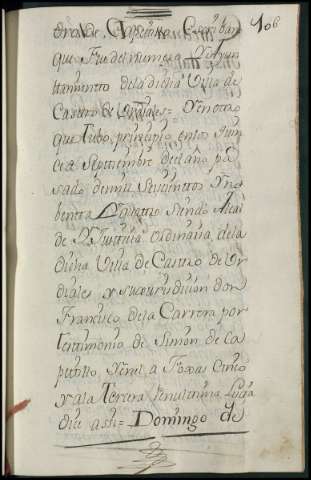 106
que fue del numero y Ayun
tamiento de la dicha Villa de
Castro de Urdiales = Y en otro
que tubo principio en los quin
ce de Septiembre del año pa
sado de mil Seiscientos y no
benta y quatro siendo Alcal
de y Justicia ordinaria de la
dicha Villa de Castro de Ur
diales y su Jurisdicion don
Francisco de la Carrera por
testimonio de Simon de Ca
petillo, Y en el a foxas cinco
y a la tercera
dice assi = Domingo de